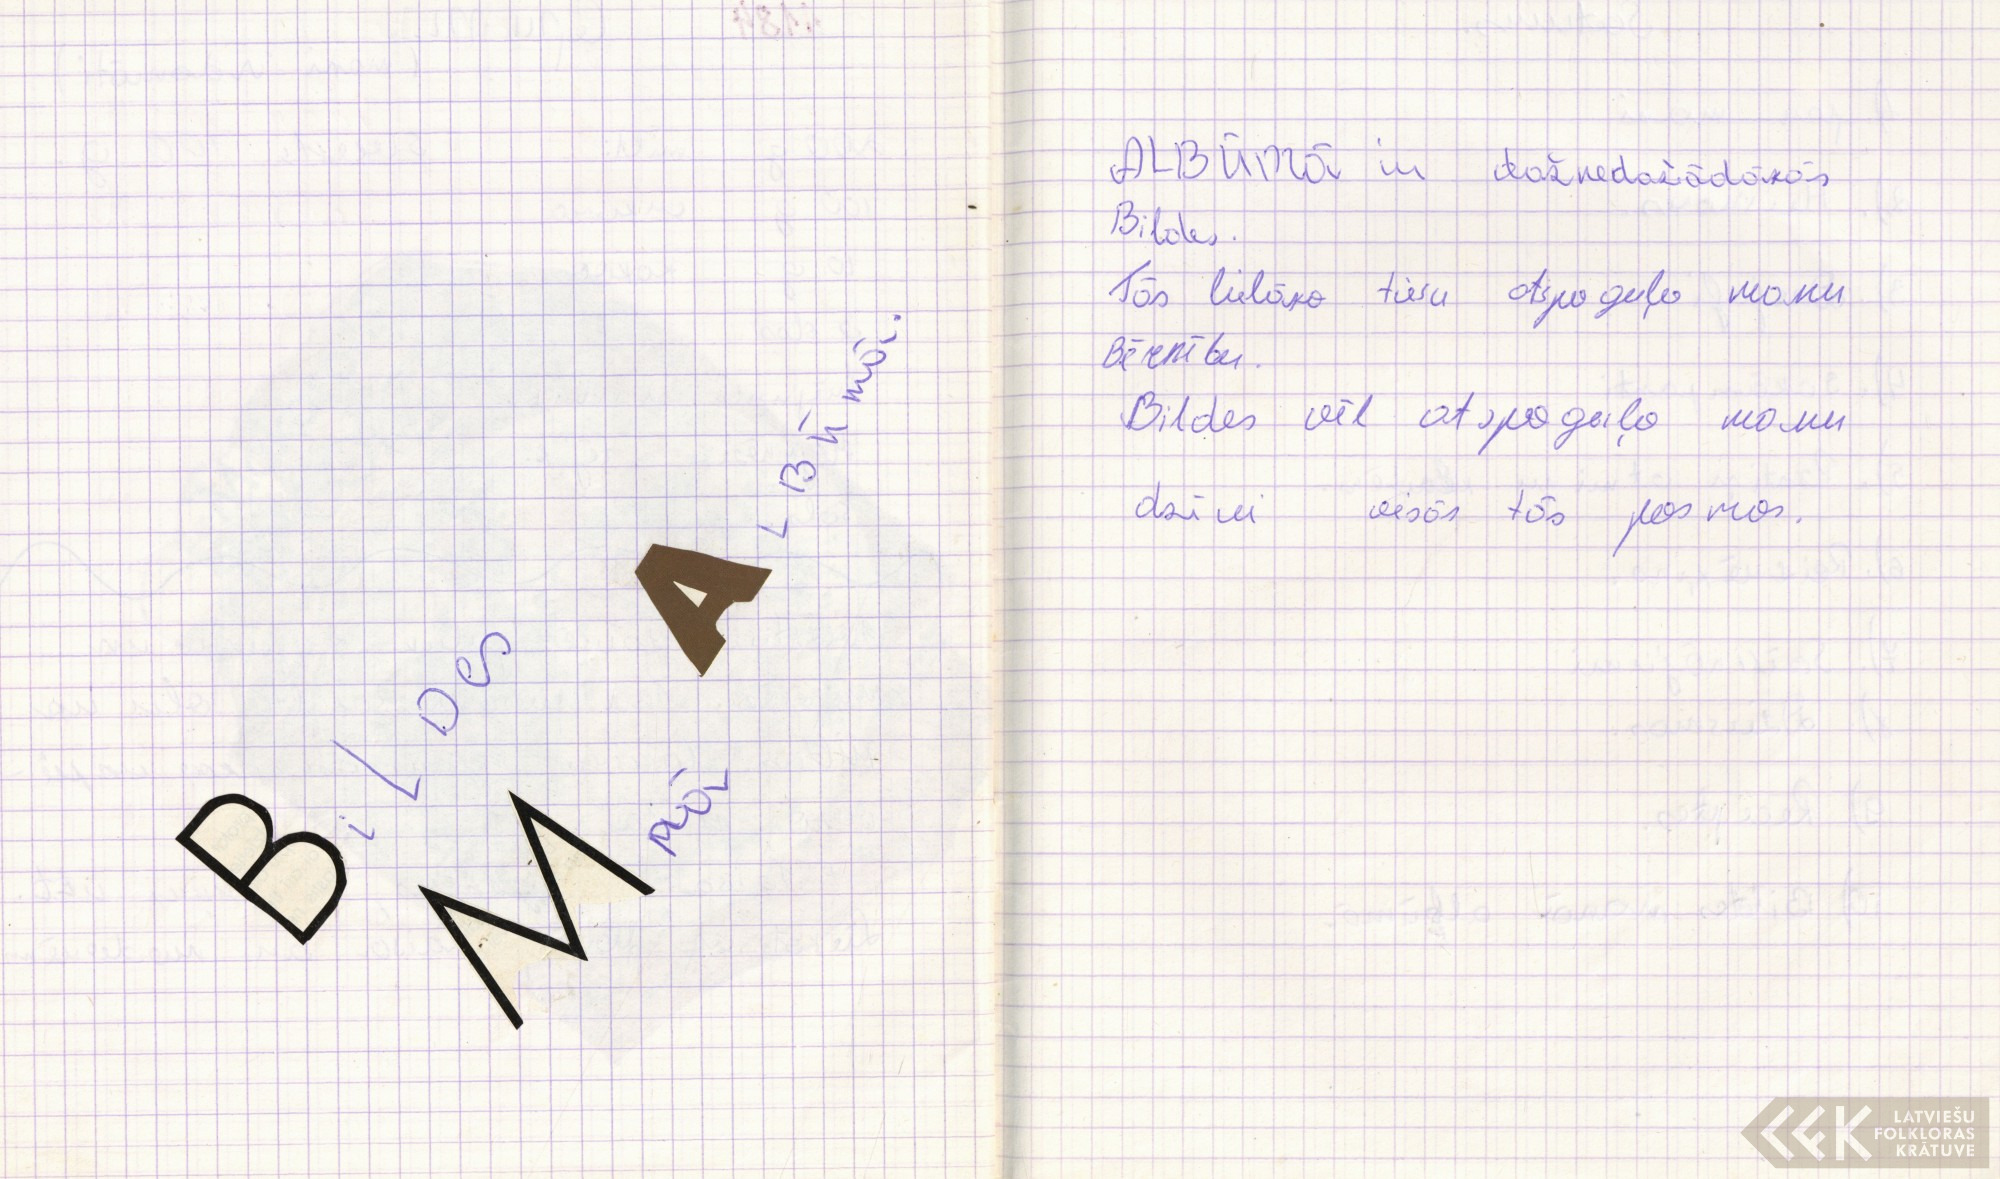 BiLDes
MĀi
ALBūmāi.
ALBŪMā ir dažnedažādākās
Bildes.
Tās lielāko tiesu atspoguļo manu
Bērnību.
Bildes vēl atspoguļo manu
dzīvi visās tās posmos.
LATVIEŠU
FOLKLORAS
KRĀTUVE